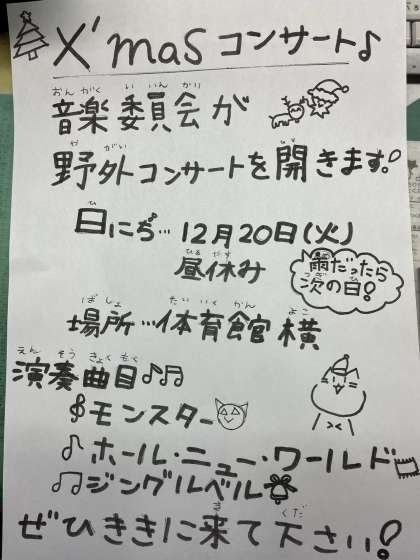 X'mas コンサート♪
おんがく いいんかい
音楽委員会が
やがい ひら
野外コンサートを開きます。
ひ
日にち… 12月20日(火)
ひるやす
昼休み
雨だったら
つぎ ひ
次の日!
ばしょ たいいくかん よこ
場所…体育館横
えんそうきょくもく
演奏曲目♪♫
モンスター
♪ホール・ニュー・ワールド
♫ジングルベル
き くだ
ぜひききに来て下さい!